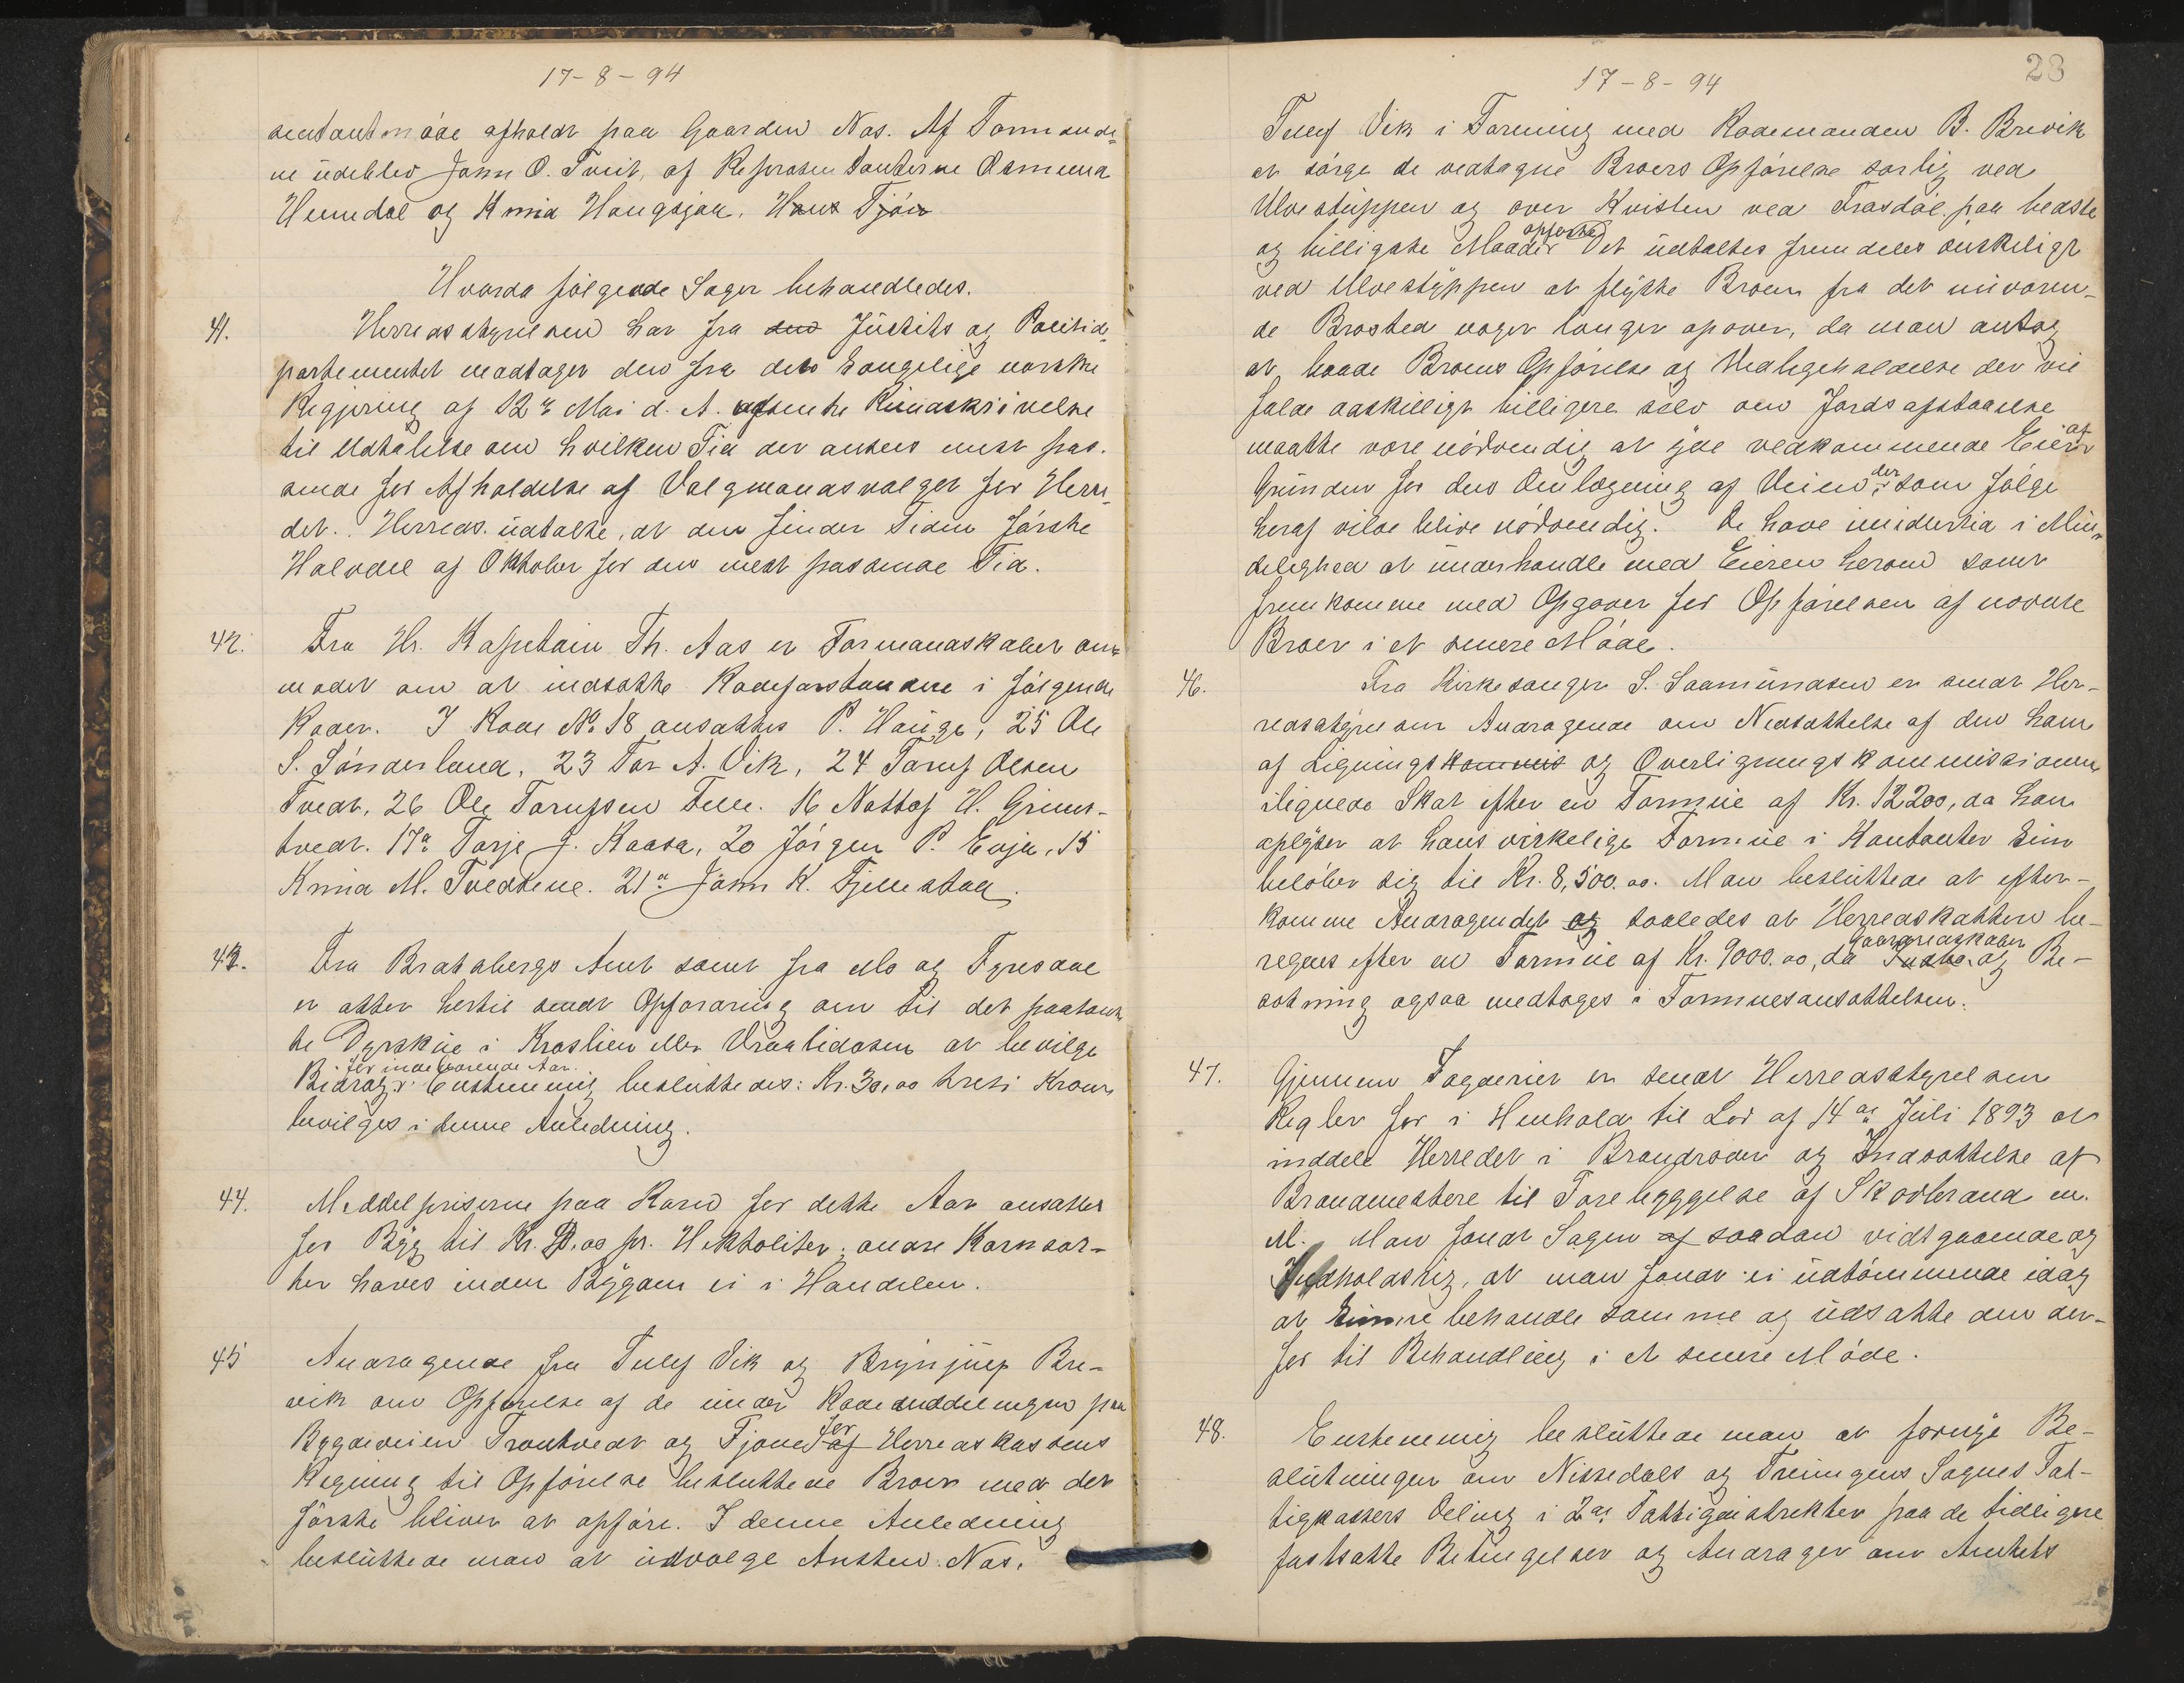 17-8-94
sentantmøde afholdt paa Gaarden Nas. Af Formænde-
ne udeblev Jørn O. Tveit, af Repræsentanterne Aamund
Hemdal og Knud Haugsjaa. Hans Tjón
Hvorda følgende Sager behandledes.
41. Herredsstyrelsen har fra den Justits og Politide-
partementet modtaget den fra den kongelige norske
Regjering af 12te Mai d. A. afsendte Rundskrivelse
til Udtalelse om hvilken Tid der ansees mest pas-
sende for Afholdelse af Valgmandsvalget for Herre-
det. Herreds. udtalte, at den finder Tiden første
Halvdel af Oktober for den mest passende Tid.
42. Fra Hr. Kaptain Th. Aas er Formandskabet an-
modet om at indsætte Rodeforstandere i følgende
Roder. I Rode No 18 ansattes P. Hauge, 25 Ole
S. Sønderland, 23 Tor A. Vik, 24 Taruf Olsen
Tvedt, 26 Ole Tarufsen Felle. 16 Nottof H. Grims-
tvedt. 17a Tarje J. Kaasa, 20 Jørgen P. Evju, 15
Knud M. Tvedtene. 21a Jørn K. Fjellestad.
43. Fra Bratsbergs Amt samt fra Mo og Fyresdal
er atter hertil sendt Opfordring om til det paatænk
te Dyrskue i Kroslien eller Vraalidosen at bevilge
for indeværende Aar.
Bidrag. Enstemmig besluttedes: Kr. 30,00 treti Kroner
bevilges i denne Anledning.
44. Meddelpriserne paa Korn for dette Aar ansattes
for Byg til Kr. ,00 pr. Hektoliter; andre Kornsor-
ter haves inden Bygden ei i Handelen.
45 Andragende fra Tulef Vik og Brynjulf Bre-
vik om Opførelse af de under Rodeinddelingen paa
Bygdeveien Trontvedt og Fjone for af Herredskassens
Regning til Opførelse besluttede Broer med det
første bliver at opføre. I denne Anledning
besluttede man at udvælge Ansten Nas,
28
17-8-94
Tulef Vik i Forening med Rodemanden B. Brevik
at sørge de vedtagne Broers Opførelse særlig ved
Ulvestuppen og over Kvisten ved Trasdal paa bedste
opførte
og billigste Maade. Det udtaltes fremdeles ønskeligt
ved Ulvestyppen at flytte Broen fra det nuværen-
de Brosted noget længer opover, da man antog
at baade Broens Opførelse og Vedligeholdelse der vil
falde adskilligt billigere selv om Jordsafstaaelse
maatte være nødvendig at give vedkommende Eier af
Grunden for den Omlægning af Veien, der som Følge
heraf vilde blive nødvendig. De have imidlertid i Min-
delighed at underhandle med Eieren herom samt
fremkomme med Opgaver for Opførelsen af nævnte
Broer i et senere Møde.
46. Fra Kirkesanger S. Saamundsen er sendt Her-
redsstyrelsen Andragende om Nedsættelse af den ham
af Ligningskommis og Overligningskommissionen
ilignede Skat efter en Formue af Kr. 12200, da han
oplyser at hans virkelige Formue i Kontanter kun
beløber sig til Kr. 8,500.00. Man besluttede at efter-
komme Andragendet og saaledes at Herredskatten be-
regnes efter en Formue af Kr. 9000.00, da Indbo og Be-
Gaardredskaber
sætning ogsaa medtages i Formuesansættelsen.
47. Gjennem Fogderiet er sendt Herredsstyrelsen
Regler for i Henhold til Lov af 14de Juli 1893 at
inddele Herredet i Brandroder og Indsættelse af
Brandmestere til Forebyggelse af Skovbrand m.
M. Man fandt Sagen af saadan vidtgaaende og
Indholdsrig, at man fandt ei udtømmende idag
at kunne behandle samme og udsatte den der-
for til Behandling i et senere Møde.
48. Enstemmig besluttede man at fornye Be-
slutningen om Nissedals og Treungens Sognes Fat-
tigkassers Deling i 2de Fattigdistrikter paa de tidligere
fastsatte Betingelser og Andrager om Amtets